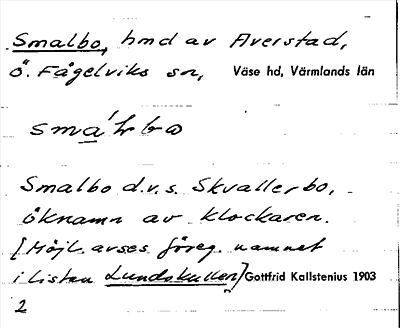 Smalbo, hmd av Averstad,
Ö. Fågelviks sn, Väse hd, Värmlands län
smáɫbω
Smalbo d.v.s. Skvallerbo,
öknamn av klockaren.
[Möjl. avses föreg. namnet
i listan Lundskullen] Gottfrid Kallstenius 1903
2